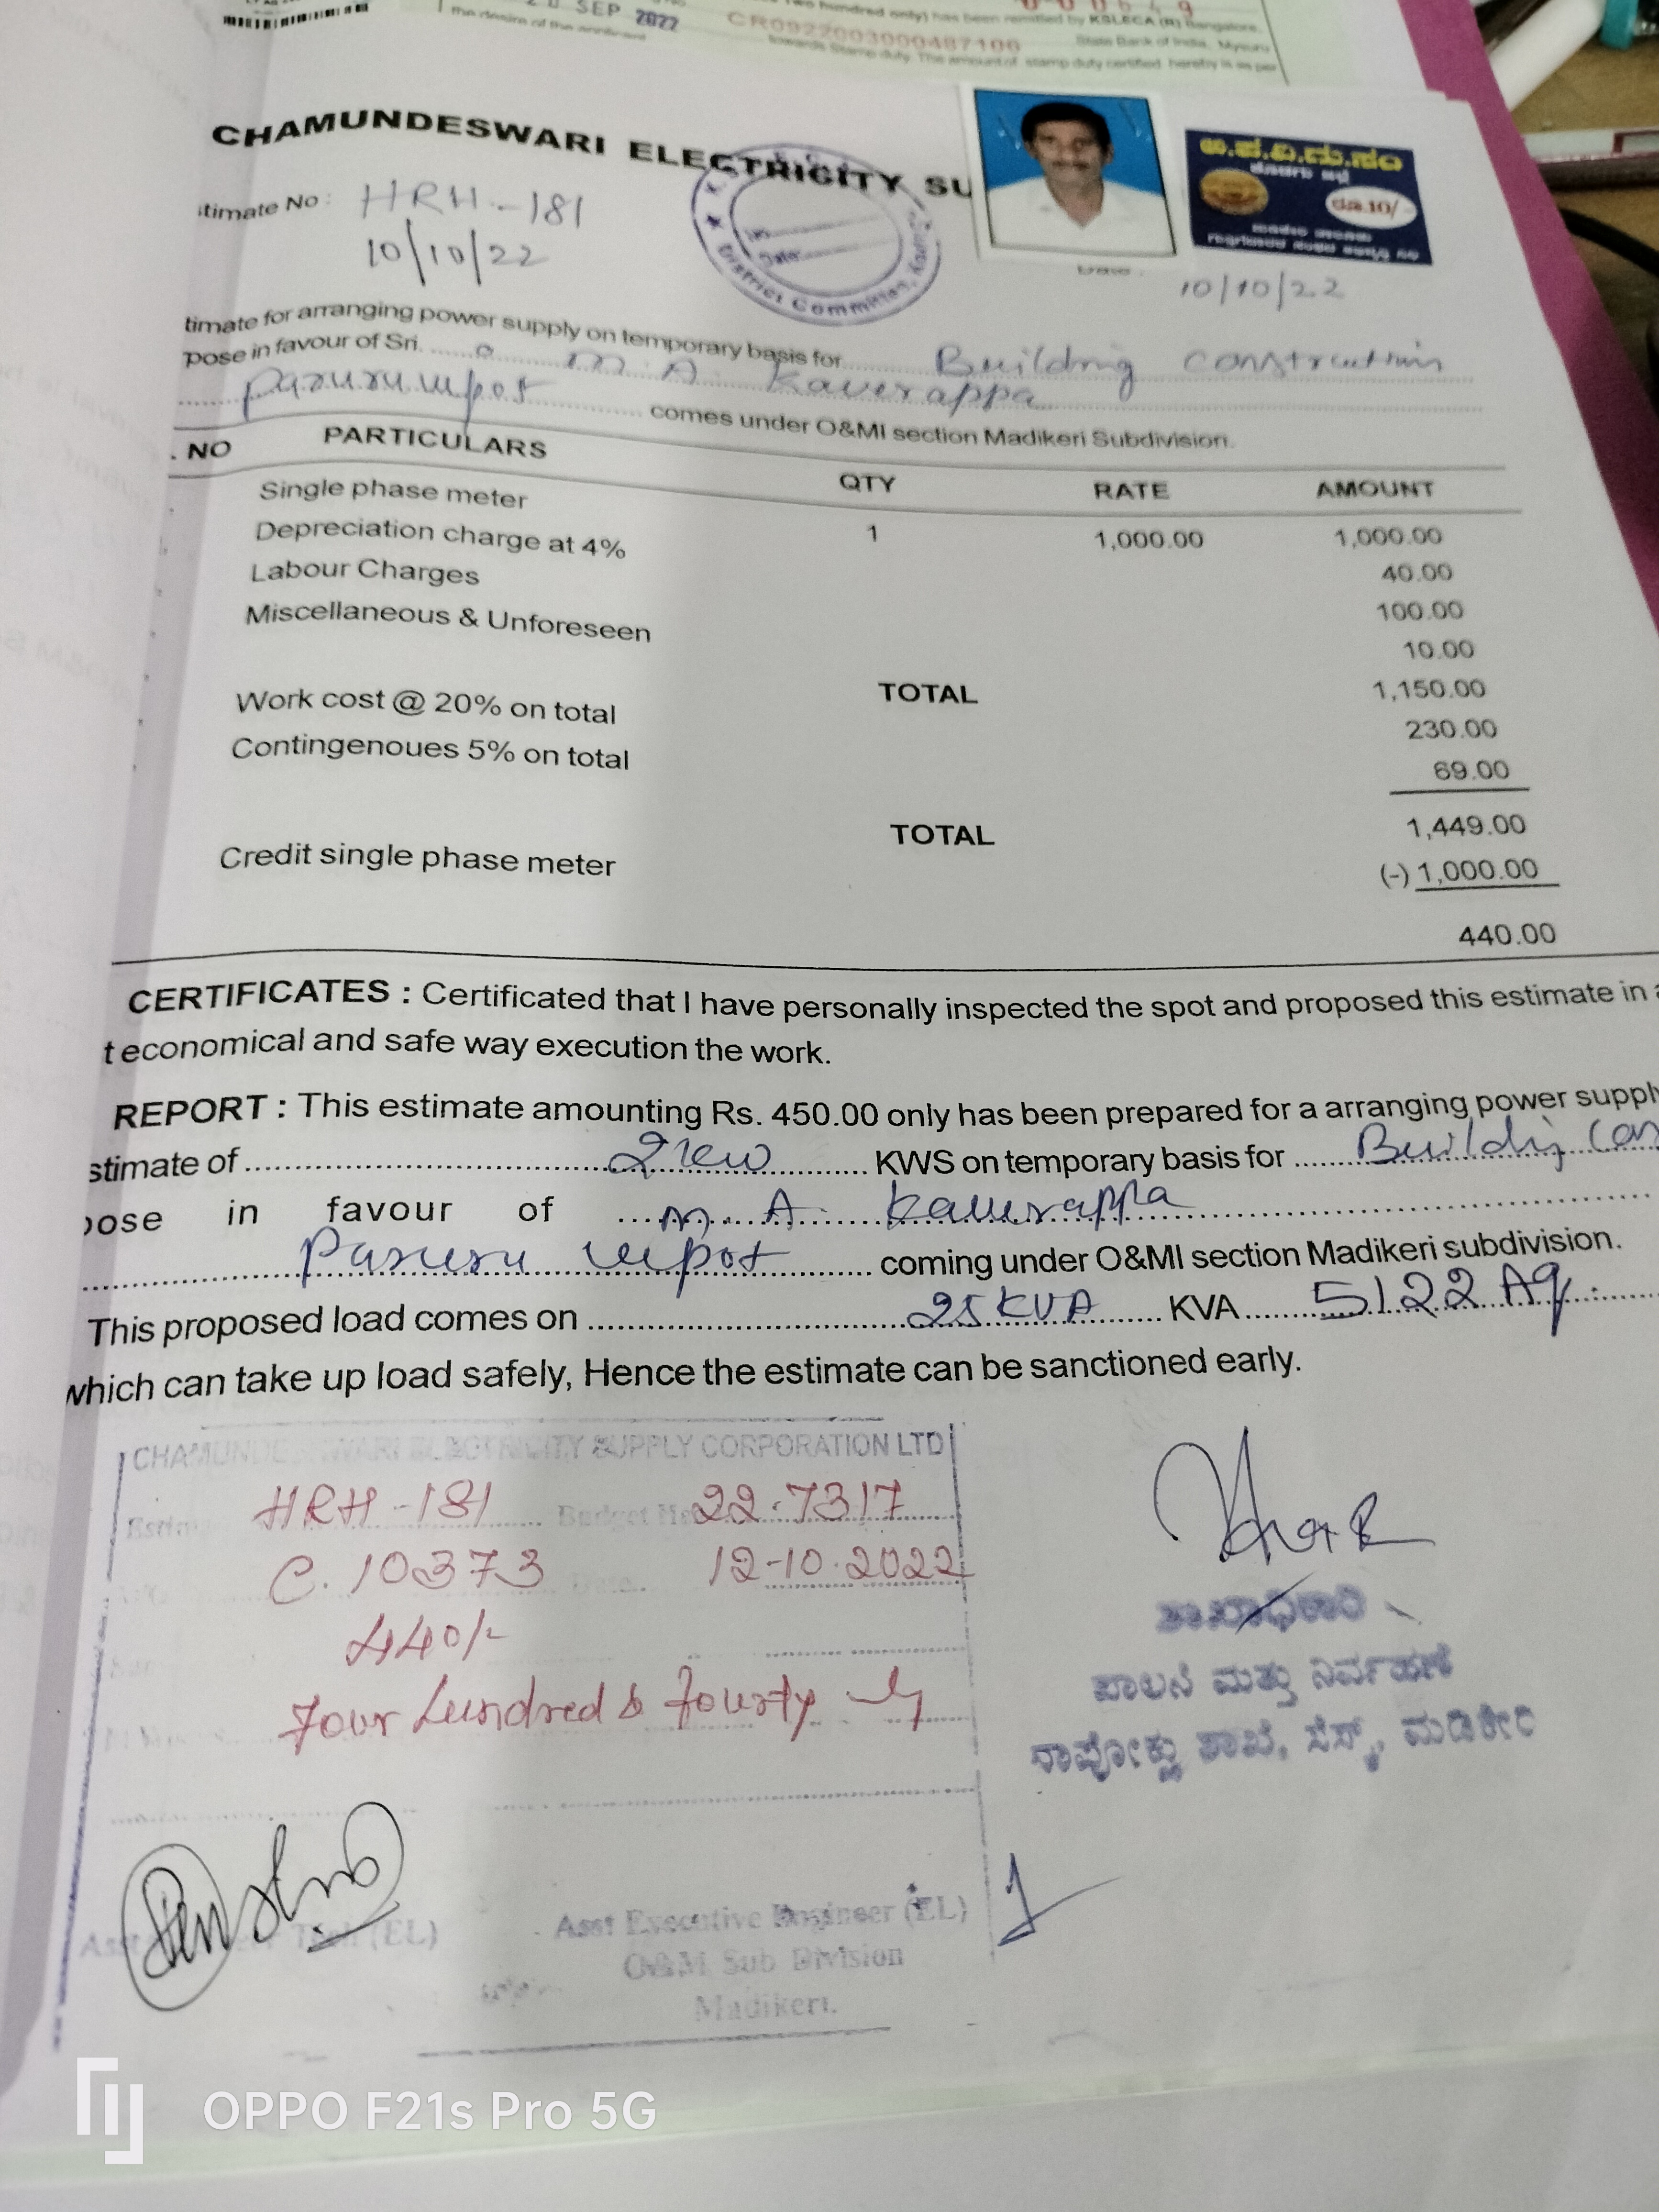 SEP 2022
the desire of the applicant
Two hundred only) has been remitted by KSLECA (R) Bangalore,
CR0922003000487100
State Bank of India, Mysuru
towards Stamp duty. The amount of stamp duty certified hereby is as per
CHAMUNDESWARI ELECTRICITY SU
District Committee,
ಅ.ಪ.ವಿ.ಮ.ಸಂ
ರೂ.10/-
timate No : HRH-181
10/10/22
Date : 10/10/22
timate for arranging power supply on temporary basis for Building construction
pose in favour of Sri. M.A. Kaverappa
comes under O&MI section Madikeri Subdivision.
. NO PARTICULARS QTY RATE AMOUNT
Single phase meter 1 1,000.00 1,000.00
Depreciation charge at 4% 40.00
Labour Charges 100.00
Miscellaneous & Unforeseen 10.00
TOTAL 1,150.00
Work cost @ 20% on total 230.00
Contingenoues 5% on total 69.00
TOTAL 1,449.00
Credit single phase meter (-) 1,000.00
440.00
CERTIFICATES : Certificated that I have personally inspected the spot and proposed this estimate in a
t economical and safe way execution the work.
REPORT : This estimate amounting Rs. 450.00 only has been prepared for a arranging power supply
stimate of 2kw KWS on temporary basis for Building Con
pose in favour of M.A. Kaverappa
coming under O&MI section Madikeri subdivision.
This proposed load comes on 25 KVA KVA
which can take up load safely, Hence the estimate can be sanctioned early.
CHAMUNDESHWARI ELECTRICITY SUPPLY CORPORATION LTD
HRH-181 Budget He 22.7317
C. 10373 Date. 12-10.2022
440/-
Four hundred & fourty
ಶಾಖಾಧಿಕಾರಿ
ಪಾಲನೆ ಮತ್ತು ನಿರ್ವಹಣೆ
ನಾಪೋಕ್ಲು ಶಾಖೆ, ಸೆಸ್ಕ್, ಮಡಿಕೇರಿ
(EL)
Asst Executive Engineer (EL)
O&M Sub Division
Madikeri.
OPPO F21s Pro 5G